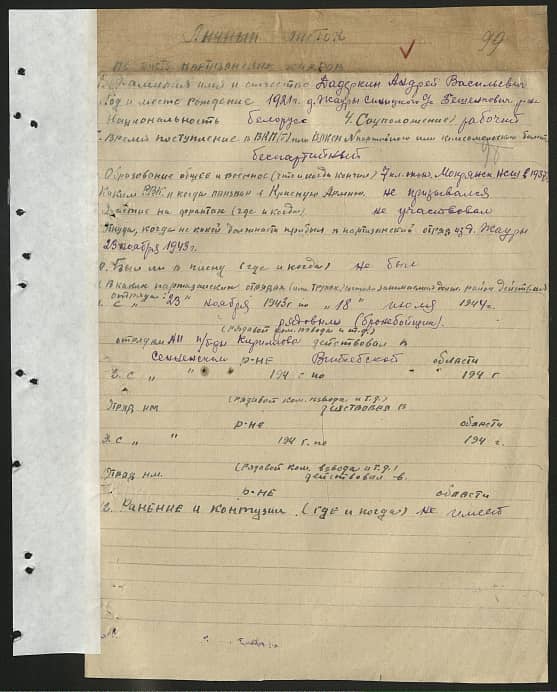 Личный листок
99
по учёту партизанских кадров
Фамилия имя и отчество Дадеркин Андрей Васильевич
Год и место рождение 1921г. д. Жауры с/совета Бешенкович. р-на
Национальность белорус 4. Соцположение рабочий
Время поступление в ВКП(б) или ВЛКСМ N партийного или комсомольского билета
беспартийный
Образование общее и военное (что и когда кончил) 7 кл. НСШ в 1937
Каким РВК и когда призван в Красную Армию. не призывался
Участие на фронтах (где и когда). не участвовал
Откуда, когда на какой должности прибыл в партизанский отряд из д. Жауры
23 ноября 1943г.
Был ли в плену (где и когда) не был
В каких партизанских отрядах действовал
С " 23 ноября 1943г по " 18 " июля 1944г.
рядовым (бронебойщик).
(рядовой ком. взвода и т.д.)
отряда п/б-ды Кирилова действовал в
Сенненском р-не Витебской области
С " " 194 г по " " 194 г
(рядовой ком. взвода и т.д.)
отряд им действовал в
р-не области
С " " 194 г. по 194 г.
(рядовой ком. взвода и т.д.)
отряд им. действовал в.
р-не области
Ранение и контузии (где и когда) не имеет